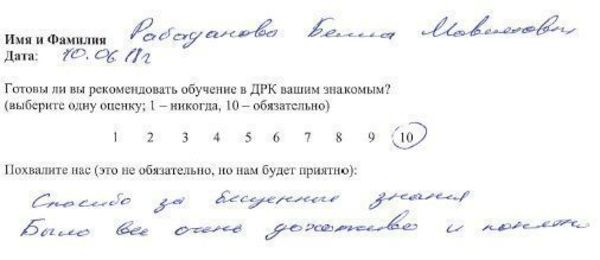 Имя и Фамилия Рабаданова Белла
Дата: 10.06.18г
Готовы ли вы рекомендовать обучение в ДРК вашим знакомым?
(выберите одну оценку; 1 – никогда, 10 – обязательно)
1 2 3 4 5 6 7 8 9 10
Похвалите нас (это не обязательно, но нам будет приятно):
Спасибо за бесценные знания
Было все очень доходчиво и понятно